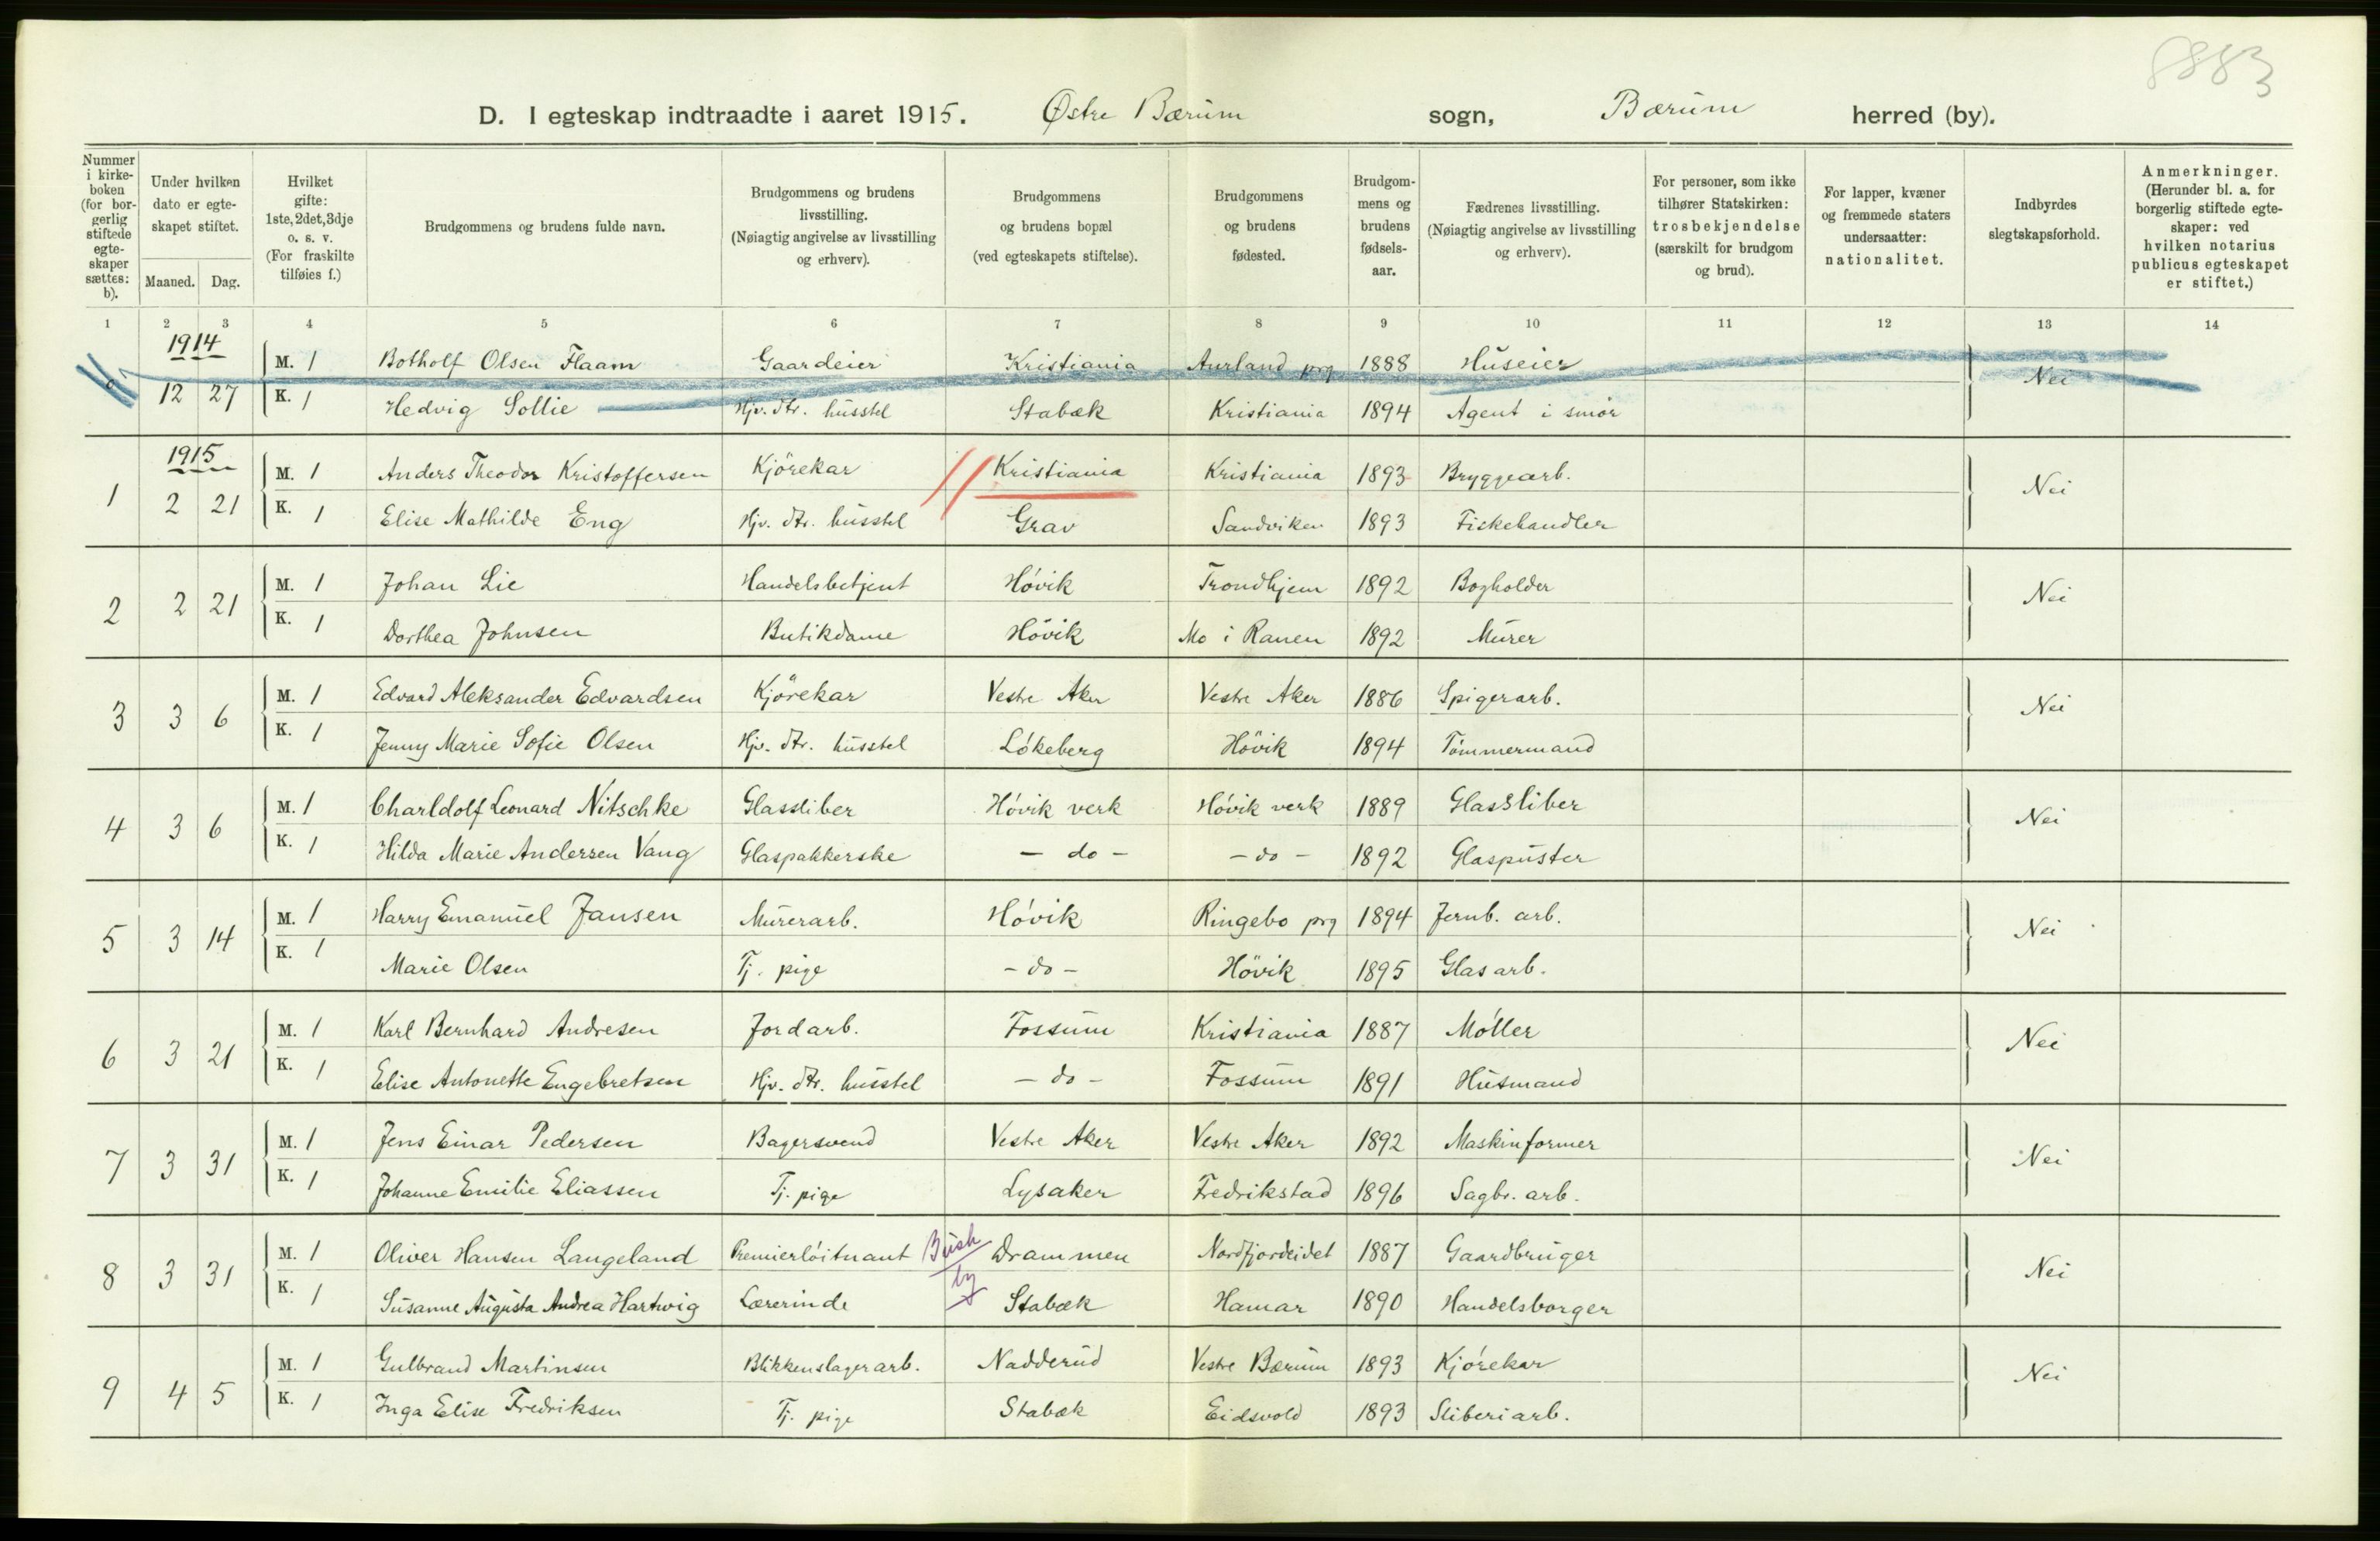 8883
D. I egteskap indtraadte i aaret 1915. Østre Bærum sogn, Bærum herred (by).
Nummer i kirke-boken (for bor-gerlig stiftede egte-skaper sættes: b).
Under hvilken dato er egte-skapet stiftet.
Maaned. Dag.
Hvilket gifte: 1ste, 2det, 3dje o. s. v. (For fraskilte tilføies f.)
Brudgommens og brudens fulde navn.
Brudgommens og brudens livsstilling. (Nøiagtig angivelse av livsstilling og erhverv).
Brudgommens og brudens bopæl (ved egteskapets stiftelse).
Brudgommens og brudens fødested.
Brudgom-mens og brudens fødsels-aar.
Fædrenes livsstilling. (Nøiagtig angivelse av livsstilling og erhverv).
For personer, som ikke tilhører Statskirken: trosbekjendelse (særskilt for brudgom og brud).
For lapper, kvæner og fremmede staters undersaatter: nationalitet.
Indbyrdes slegtskapsforhold.
Anmerkninger. (Herunder bl. a. for borgerlig stiftede egte-skaper: ved hvilken notarius publicus egteskapet er stiftet.)
1 2 3 4 5 6 7 8 9 10 11 12 13 14
1914
M. 1 Botholf Olsen Flaam Gaardeier Kristiania Aurland prg 1888 Huseier
12 27 K. 1 Hedvig Sollie Hjv. dtr. husstel Stabæk Kristiania 1894 Agent i smør Nei
1915
M. 1 Anders Theodor Kristoffersen Kjørekar Kristiania Kristiania 1893 Bryggearb.
1 2 21 K. 1 Elise Mathilde Eng Hjv. dtr. husstel Grav Sandviken 1893 Fiskehandler Nei
M. 1 Johan Lie Handelsbetjent Høvik Trondhjem 1892 Bogholder
2 2 21 K. 1 Dorthea Johnsen Butikdame Høvik Mo i Ranen 1892 Murer Nei
M. 1 Edvard Aleksander Edvardsen Kjørekar Vestre Aker Vestre Aker 1886 Spigerarb.
3 3 6 K. 1 Jenny Marie Sofie Olsen Hjv. dtr. husstel Løkeberg Høvik 1894 Tømmermand Nei
M. 1 Charldolf Leonard Nitschke Glassliber Høvik verk Høvik verk 1889 Glassliber
4 3 6 K. 1 Hilda Marie Andersen Vang Glaspakkerske - do - - do - 1892 Glaspuster Nei
M. 1 Harry Emanuel Jansen Murerarb. Høvik Ringebo prg 1894 Jernb. arb.
5 3 14 K. 1 Marie Olsen Tj. pige - do - Høvik 1895 Glasarb. Nei
M. 1 Karl Bernhard Andresen Jordarb. Fossum Kristiania 1887 Møller
6 3 21 K. 1 Elise Antonette Engebretsen Hjv. dtr. husstel - do - Fossum 1891 Husmand Nei
M. 1 Jens Einar Pedersen Bagersvend Vestre Aker Vestre Aker 1892 Maskinformer
7 3 31 K. 1 Johanne Emilie Eliassen Tj. pige Lysaker Fredrikstad 1896 Sagbr. arb. Nei
M. 1 Oliver Hansen Langeland Premierløitnant Busk Drammen Nordfjordeidet 1887 Gaardbruger
8 3 31 K. 1 Susanne Augusta Andrea Hartwig Lærerinde by Stabæk Hamar 1890 Handelsborger Nei
M. 1 Gulbrand Martinsen Blikkenslagerarb. Nadderud Vestre Bærum 1893 Kjørekar
9 4 5 K. 1 Inga Elise Fredriksen Tj. pige Stabæk Eidsvold 1893 Sliberiarb. Nei